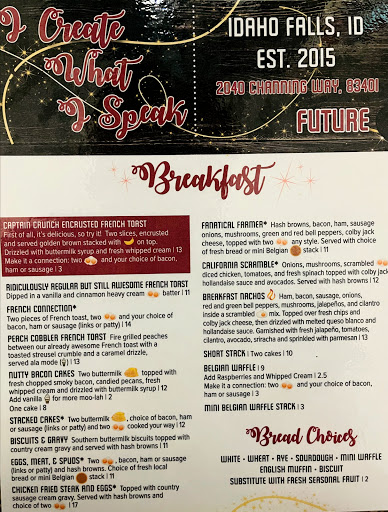 I Create
What
I Speak
IDAHO FALLS, ID
EST. 2015
2040 CHANNING WAY, 83401
FUTURE
Breakfast
CAPTAIN CRUNCH ENCRUSTED FRENCH TOAST
First of all, it's delicious, so try it! Two slices, encrusted
and served golden brown stacked with on top.
Drizzled with buttermilk syrup and fresh whipped cream | 13
Make it a connection: two and your choice of bacon,
ham or sausage | 3
RIDICULOUSLY REGULAR BUT STILL AWESOME FRENCH TOAST
Dipped in a vanilla and cinnamon heavy cream batter | 11
FRENCH CONNECTION*
Two pieces of French toast, two and your choice of
bacon, ham or sausage (links or patty) | 14
PEACH COBBLER FRENCH TOAST Five grilled peaches
between our already awesome French toast with a
toasted streusel crumble and a caramel drizzle,
served ala mode | 13
NUTTY BACON CAKES Two buttermilk topped with
fresh chopped smoky bacon, candied pecans, fresh
whipped cream and drizzled with buttermilk syrup | 12
Add vanilla for more moo-lah | 2
One cake | 8
STACKED CAKES* Two buttermilk , choice of bacon, ham
or sausage (links or patty) and two cooked your way | 12
BISCUITS & GRAVY Southern buttermilk biscuits topped with
country cream gravy and served with hash browns | 11
EGGS, MEAT, & SPUDS* Two , bacon, ham or sausage
(links or patty) and hash browns. Choice of fresh local
bread or mini Belgian stack | 11
CHICKEN FRIED STEAK AND EGGS* Topped with country
sausage cream gravy. Served with hash browns and
choice of two | 17
FANATICAL FARMER* Hash browns, bacon, ham, sausage
onions, mushrooms, green and red bell peppers, colby jack
cheese, topped with two any style. Served with choice
of fresh bread or mini Belgian stack | 11
CALIFORNIA SCRAMBLE* Onions, mushrooms, scrambled
diced chicken, tomatoes, and fresh spinach topped with colby jack
hollandaise sauce and avocados. Served with hash browns | 12
BREAKFAST NACHOS Ham, bacon, sausage, onions,
red and green bell peppers, mushrooms, jalapeños, and cilantro
inside a scrambled mix. Topped over fresh chips and
colby jack cheese, then drizzled with melted queso blanco and
hollandaise sauce. Garnished with fresh jalapeño, tomatoes,
cilantro, avocado, sriracha and sprinkled with parmesan | 13
SHORT STACK | Two cakes | 10
BELGIAN WAFFLE | 9
Add Raspberries and Whipped Cream | 2.5
Make it a connection: two and your choice of bacon,
ham or sausage | 3
MINI BELGIAN WAFFLE STACK | 3
Bread Choices
WHITE • WHEAT • RYE • SOURDOUGH • MINI WAFFLE
ENGLISH MUFFIN • BISCUIT
SUBSTITUTE WITH FRESH SEASONAL FRUIT | 2